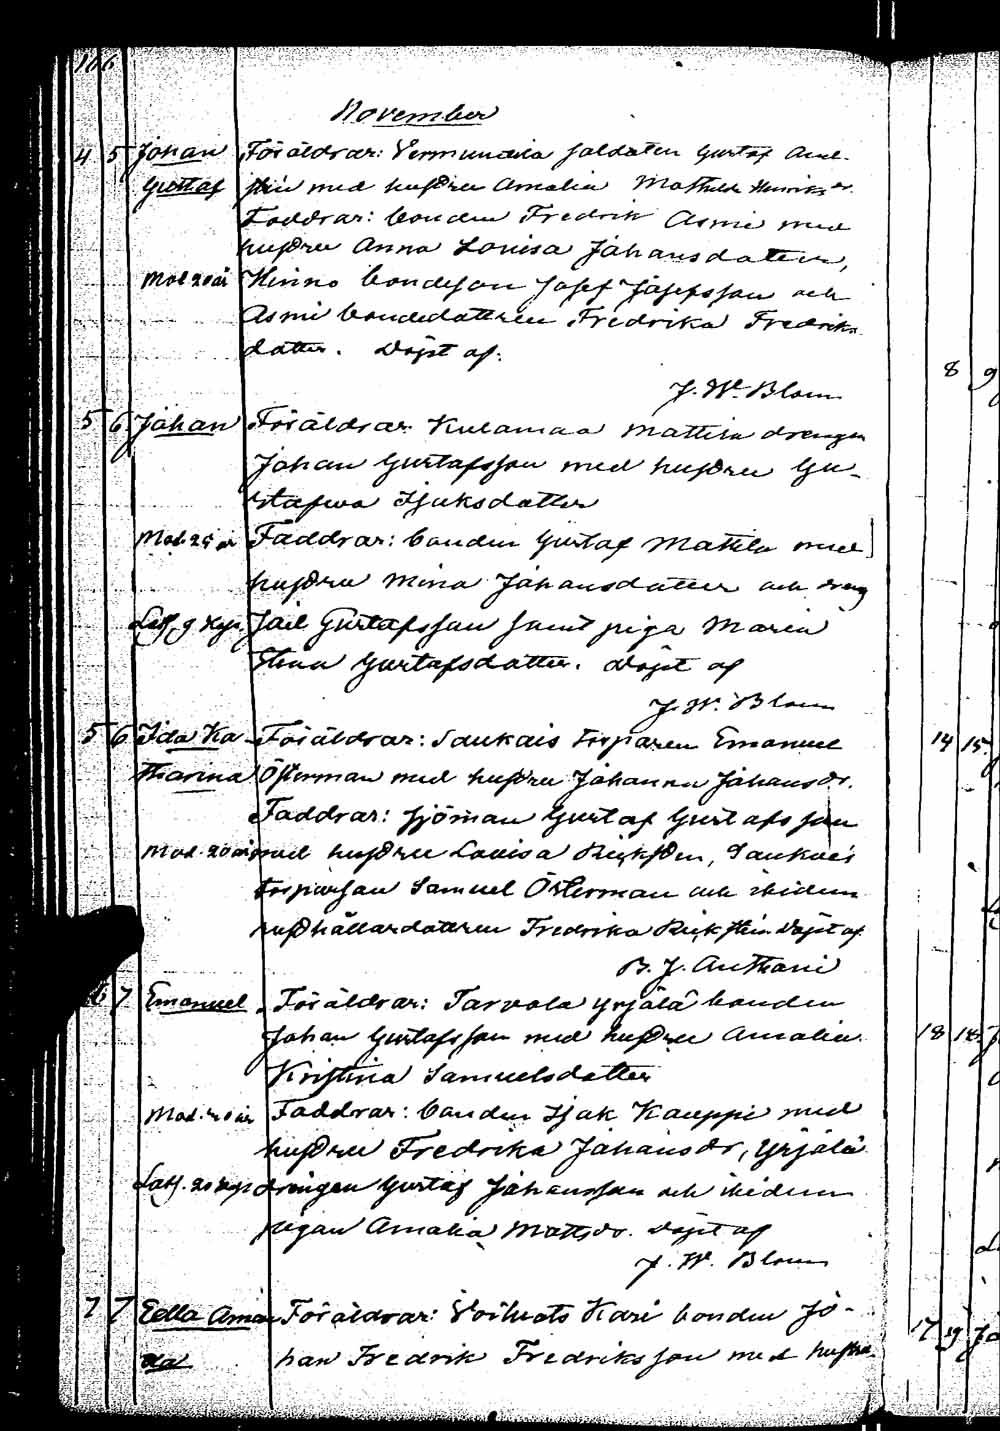 166
November
4 5 Johan Föräldrar: soldaten Gustaf
Gustaf med hustru Amalia Mathilda Henriksdr.
Faddrar: bonden Fredrik Asmi med
hustru Anna Lovisa Johansdotter,
Mod. 20 år Hinno bondeson Josef Josefsson och
Asmi bondedottren Fredrika Fredriks
dotter. Döpt af:
J. W. Blom
5 6 Johan Föräldrar: Mattila drengen
Johan Gustafsson med hustru Gu-
stafwa Isaksdotter
Mod. 25 år Faddrar: bonden Gustaf Mattila med
hustru Mina Johansdotter och dreng
Gustafsson samt piga Maria
Stina Gustafsdotter. Döpt af
J. W. Blom
5 6 Ida Ka- Föräldrar: Saukais torparen Emanuel
tharina Österman med hustru Johanna Johansdr.
Faddrar: Sjöman Gustaf Gustafsson
Mod. 20 år med hustru Lovisa Saukais
torparson Samuel Österman och ibidem
dottren Fredrika Döpt af
B. J. Anthoni
6 7 Emanuel Föräldrar: Tarvola Yrjälä bonden
Johan Gustafsson med hustru Amalia
Kristina Samuelsdotter
Mod. år Faddrar: bonden Isak Kauppi med
hustru Fredrika Johansdr, Yrjälä
drengen Gustaf Johansson och ibidem
pigan Amalia Mattsdr. Döpt af
J. W. Blom
7 7 Edla Aman Föräldrar: Kari bonden Jo-
da han Fredrik Fredriksson med hustru
8 9
14 15
18 18
17 19